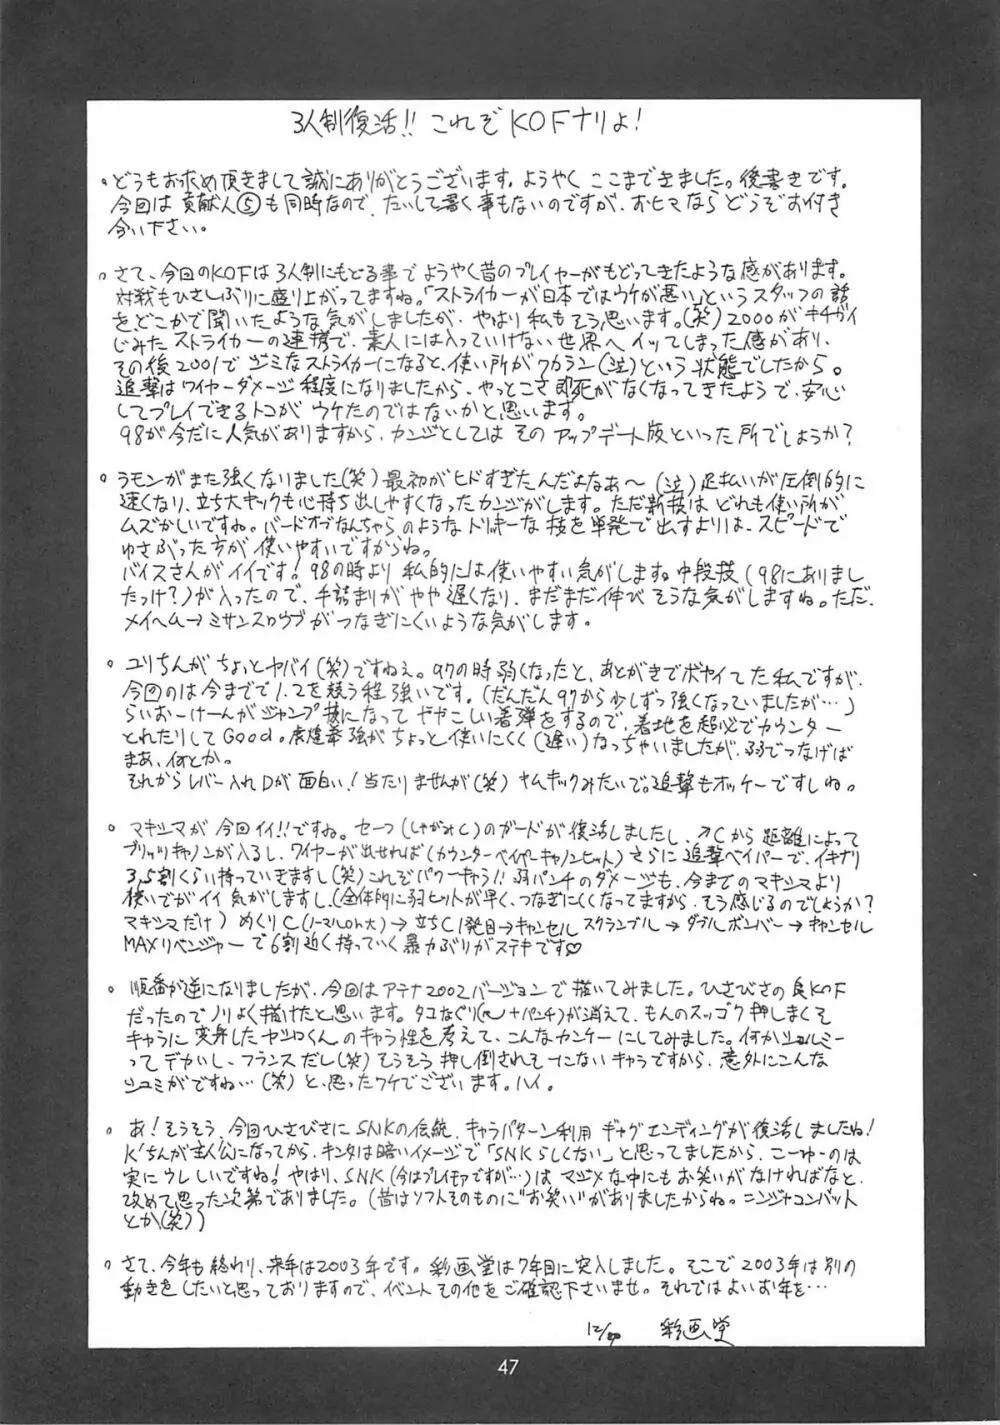 3人制復活!! これぞKOFナリよ!
。どうもお求め頂きまして誠にありがとうございます。ようやくここまできました。後書きです。
今回は貢献人⑤も同時なので、たいして書く事もないのですが、おヒマならどうぞお付き
合い下さい。
。さて、今回のKOFは3人制にもどる事でようやく昔のプレイヤーがもどってきたような感があります。
対戦もひさしぶりに盛り上がってますね。「ストライカーが日本ではウケが悪い」というスタッフの話
を、どこかで聞いたような気がしましたが、やはり私もそう思います。(笑)2000がキチガイ
じみたストライカーの連携で、素人には入っていけない世界へイッてしまった感があり、
その後2001でジミなストライカーになると、使い所がワカラン(泣)という状態でしたから。
追撃はワイヤーダメージ程度になりましたから、やっとこさ即死がなくなってきたようで、安心
してプレイできるトコがウケたのではないかと思います。
98が今だに人気がありますから、カンジとしてはそのアップデート版といった所でしょうか?
。ラモンがまた強くなりました(笑)最初がヒドすぎたんだよなぁ〜(泣)足払いが圧倒的に
速くなり、立ち大キックも心持ち出しやすくなったカンジがします。ただ新技はどれも使い所が
ムズかしいですね。バードオブなんちゃらのようなトリッキーな技を単発で出すよりは、スピードで
ゆさぶった方が使いやすいですからね。
バイスさんがイイです!98の時より私的には使いやすい気がします。中段技(98にありまし
たっけ?)が入ったので、手詰まりがやや遅くなり、まだまだ伸びそうな気がしますね。ただ、
メイヘム→ミサンスロウブがつなぎにくいような気がします。
。ユリちんがちょっとヤバイ(笑)ですねぇ。97の時弱くなったと、あとがきでボヤイてた私ですが、
今回のは今までで1.2を競う程強いです。(だんだん97から少しずつ強くなっていましたが…)
らいおーけーんがジャンプ技になってややこしい着弾をするので、着地を超必でカウンター
とれたりしてGood。虎煌拳強がちょっと使いにくく(遅い)なっちゃいましたが、弱でつなげば
まあ、何とか。
それからレバー入れDが面白い!当たりませんが(笑)キムキックみたいで。追撃もオッケーですしね。
。マキシマが今回イイ!!ですね。せーつ(しゃがみC)のガードが復活しましたし、↗Cから距離によって
ブリッツキャノンが入るし、ワイヤーが出せれば(カウンターベイパーキャノンヒット)さらに追撃ベイパーで、イキナリ
3,5割くらい持っていきますし(笑)これぞパワーキャラ!!弱パンチのダメージも、今までのマキシマより
使いでがイイ気がしますし、(全体的に弱ヒットが早く、つなぎにくくなってますから、そう感じるのでしょうか?
マキシマだけ)めくりC(ノーマルorhズ)→立ちC1発目→キャンセルスクランブル→ダブルボンバー→キャンセル
MAXリベンジャーで6割近く持っていく暴力ぶりがステキです♡
。順番が逆になりましたが、今回はアテナ2002バージョンで描いてみました。ひさびさの良KOF
だったのでノリよく描けたと思います。タコなぐり(+パンチ)が消えて、もんのスッゴク押しまくる
キャラに変身したヤシロくんのキャラ性を考えて、こんなカンケーにしてみました。何かシェルミー
ってデカいし、フランスだし(笑)そうそう押し倒されそーにないキャラですから、意外にこんな
シュミがですね…(笑)と、思ったワケでございます。ハイ。
。あ!そうそう、今回ひさびさにSNKの伝統、キャラパターン利用ギャグエンディングが復活しましたね!
K'ちんが主人公になってから、キンタは暗いイメージで「SNKらしくない」と思ってましたから、こーゆーのは
実にウレしいですね!やはり、SNK(今はプレイモアですが…)はマジメな中にもお笑いがなければなと、
改めて思った次第でありました。(昔はソフトそのものに"お笑い"がありましたからね。ニンジャコンバット
とか(笑))
。さて、今年も終わり、来年は2003年です。彩画堂は7年目に突入しました。そこで2003年は別の
動きをしたいと思っておりますので、イベントその他をご確認下さいませ。それではよいお年を…
12/ 彩画堂
47